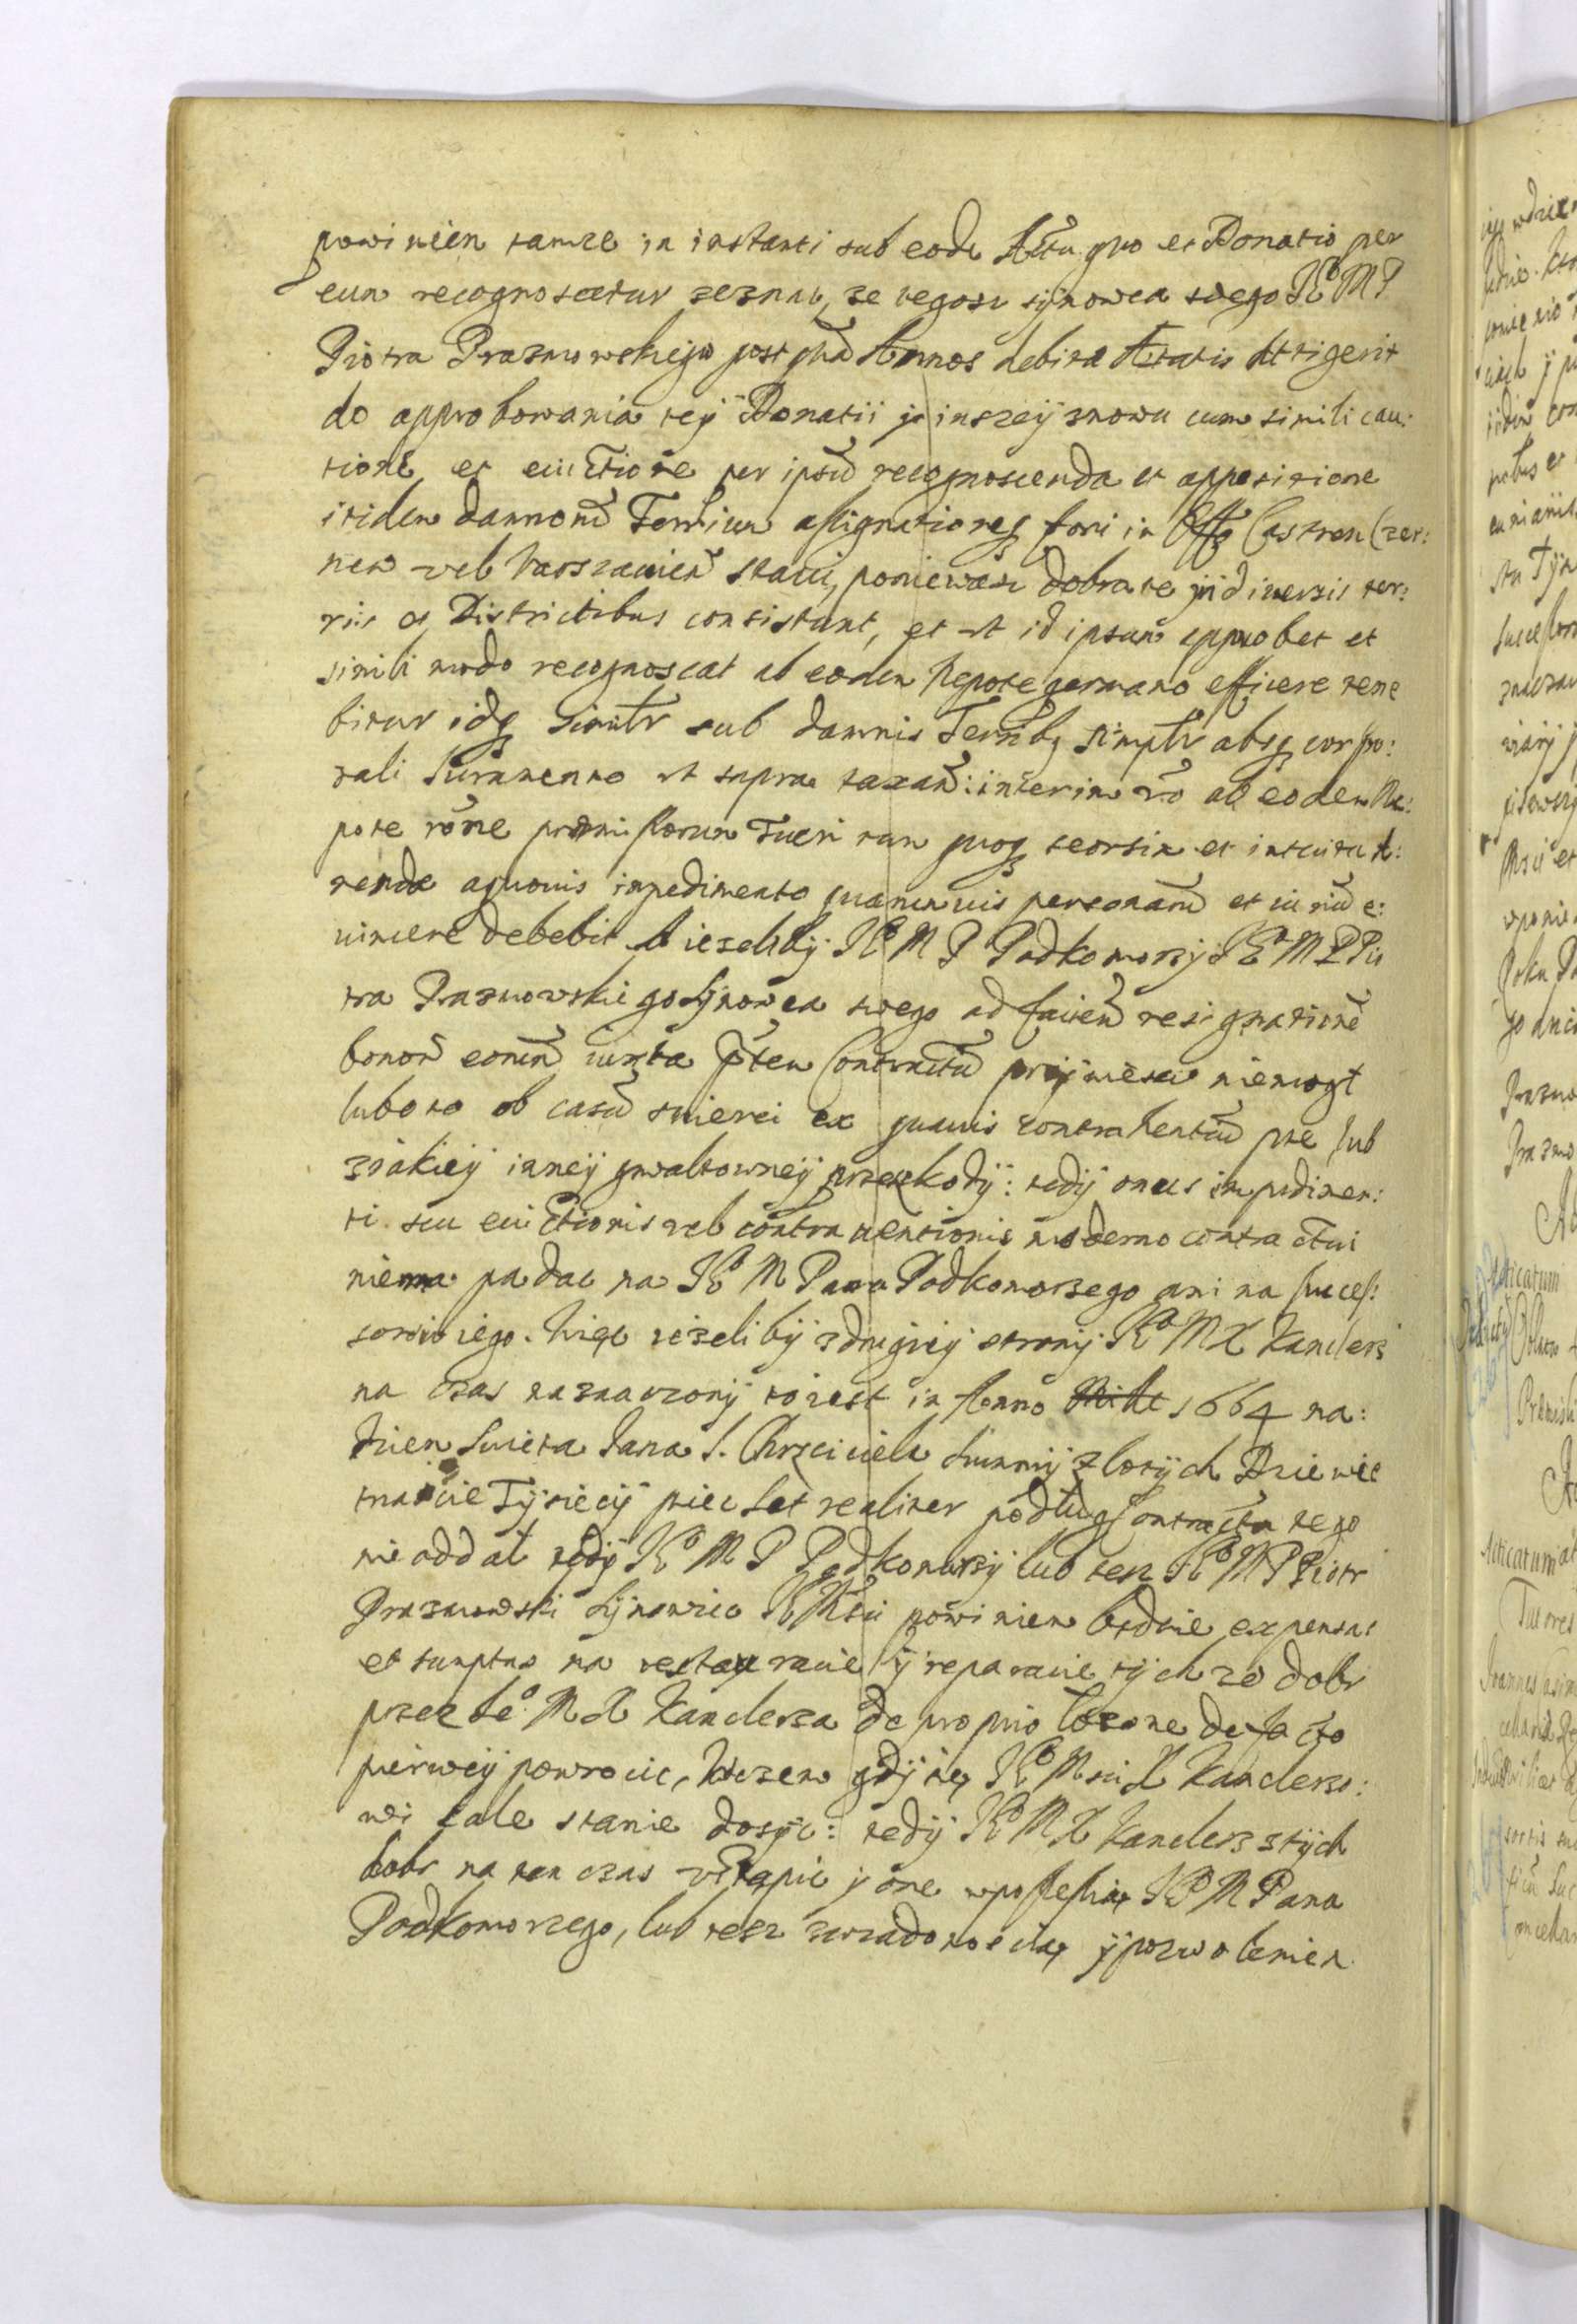 powinien tamze in instanti sub eode Actu quo et Donatio per
eum recognoscetur zeznac, ze tegosz synowca swego Jeo M P
Piotra Prazmowskiego postqua Annos debita Aetatis attigerit
do approbowania tey Donatii y inszey znowu cum simili cau:
tione et euictione per ipsu recognoscenda et appositione
itidem damnoru assignationeq fori in Offo Castren Czer:
nen vel Varszauien stawi, poniewasz dobra te in diuersis ter:
ris et Districtibus consistunt, et ut id ipsum approbet et
simili modo recognoscat ab eodem Nepote germano efficere tene
bitur idq simitr sub damnis simptr absq corpo:
rali Iuramento ut supra taxan: interim vo ab eodem Ne:
pote rone praemissorum Tueri tum quoq seorsim et intuitu
aquouis impedimento quarumuis personaru et iuriu e:
uincere debebit A iezeliby Jeo M P Podkomorzy Jeo M P Pio
tra Prazmowskiego Synowca swego ad faciend resignatione
bonor eorun iuxta pntem Contractu przywiesc niemogl
lubo to ob casu smierci ex quauis contrahentiu pte lub
zjakiey inney gwaltowney przeszkody: tedy onus impedimen:
ti seu euictionis vel contrauentionis moderno contractui
niema padac na Jeo M Pana Podkomorzego ani na success:
sorow iego. Wiec iezeliby z drugiey strony Jeo M X Kanclerz
na czas naznaczony to iest in Anno 1664 na:
dzien Swieta Jana S. Chrzciciela Summy zlotych Dziewie
tnascie Tysiecy piec set realiter podlug Contractu tego
nie oddal tedy Jeo M P Podkomorzy lub tesz Jeo M P Piotr
Prazmowski Synowiec Jeo Msci powinien bedzie expensas
et sumptus na restauracie y reparacie tych ze dobr
przez Jeo M X Kanclerza de proprio lozone de facto
pierwey powrocic, Wczem gdy sie Jeo Msci X Kanclerzo:
wi cale stanie dosyc: tedy Jeo M X Kanclerz ztych
dobr na ten czas vstapic y one wpossessią Jeo M Pana
Podkomorzego, lub tesz zwiadomoscią y pozwoleniem